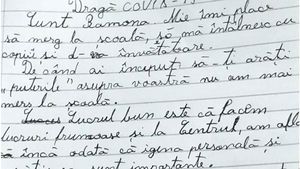 Dragă COVID-19
Sunt Ramona. Mie îmi place
să merg la scoală, să mă întâlnesc cu
copiii si d-na învătătoare.
De când ai început să-te arăti
"puterile" asupra voastră nu am mai
mers la scoală.
Lucrul bun este că facem
lucruri frumoase si la Centrul, am aflat
încă odată că igiena personală si
sunt importante.